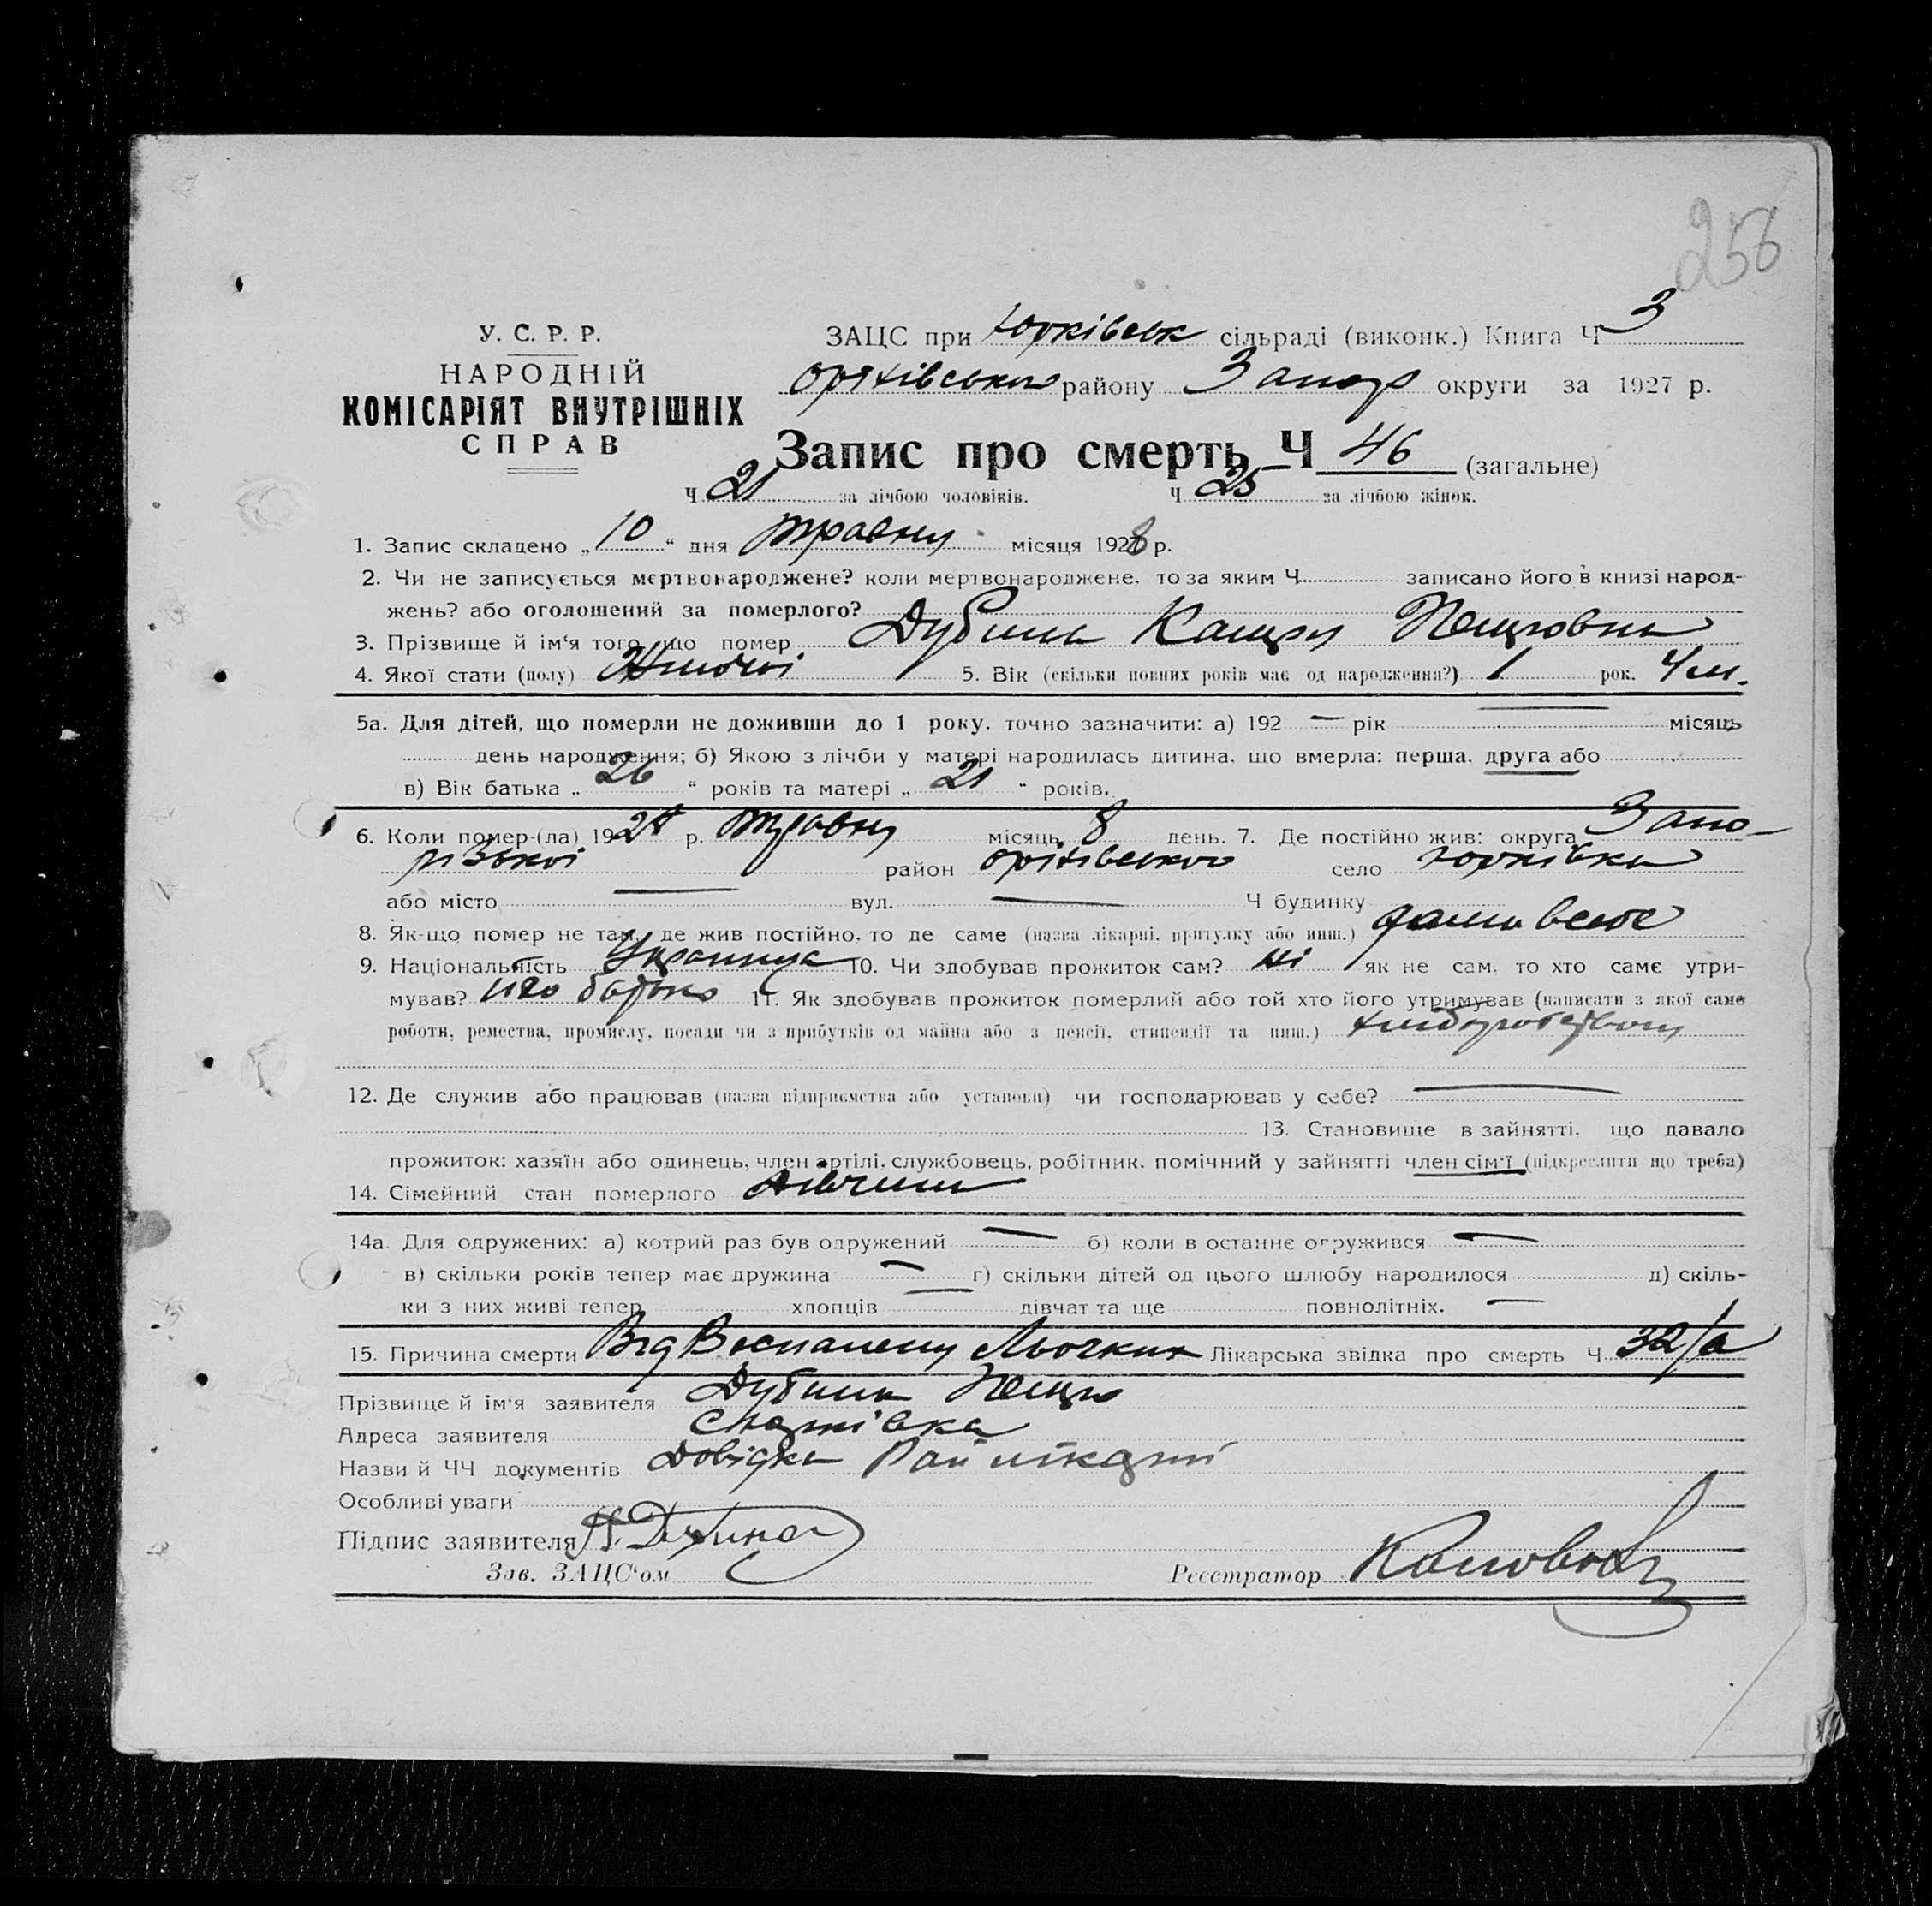 256
У. С. Р. Р.
НАРОДНІЙ
КОМІСАРІЯТ ВНУТРІШНІХ
СПРАВ
ЗАЦС при Юрківськ сільраді (виконк.) Книга Ч 3
Оріхівського району Запор округи за 1927 р.
Запис про смерть Ч 46 (загальне)
Ч 21 за лічбою чоловіків. Ч 25 за лічбою жінок.
1. Запис складено „10“ дня травня місяця 1928 р.
2. Чи не записується мертвонароджене? коли мертвонароджене, то за яким Ч записано його в книзі народ-
жень? або оголошений за померлого?
3. Прізвище й ім‘я того, що помер Дубина Катря Петровна
4. Якої стати (полу) Жіночої 5. Вік (скільки повних років має од народження?) 1 рок. 4 м.
5а. Для дітей, що померли не доживши до 1 року, точно зазначити: а) 192 — рік — місяць
день народження; б) Якою з лічби у матері народилась дитина, що вмерла: перша, друга або
в) Вік батька „ 26 “ років та матері „ 21 “ років.
6. Коли помер-(ла) 1928 р. травня місяць 8 день. 7. Де постійно жив: округа Запо-
різької район Оріхівського село Юрківка
або місто — вул. — Ч будинку
8. Як-що помер не там, де жив постійно, то де саме (назва лікарні, притулку або инш.)
9. Національність Українка 10. Чи здобував прожиток сам? ні як не сам, то хто саме утри-
мував? його батько 11. Як здобував прожиток померлий або той хто його утримував (написати з якої саме
роботи, ремества, промислу, посади чи з прибутків од майна або з пенсії, стипендії та инш.) хліборобством
12. Де служив або працював (назва підприємства або установи) чи господарював у себе? —
13. Становище в зайнятті, що давало
прожиток: хазяїн або одинець, член артілі, службовець, робітник, помічний у зайнятті член сім‘ї (підкреслити що треба)
14. Сімейний стан померлого дівчина
14а. Для одружених: а) котрий раз був одружений — б) коли в останнє огружився —
в) скільки років тепер має дружина — г) скільки дітей од цього шлюбу народилося д) скіль-
ки з них живі тепер хлопців — дівчат та ще повнолітніх. —
15. Причина смерти Від Воспаления Льогких Лікарська звідка про смерть Ч 32/а
Прізвище й ім‘я заявителя Дубина Петро
Адреса заявителя
Назви й ЧЧ документів Довідка Рай лікарні
Особливі уваги
Підпис заявителя П. Дубина
Зав. ЗАЦС‘ом Реєстратор